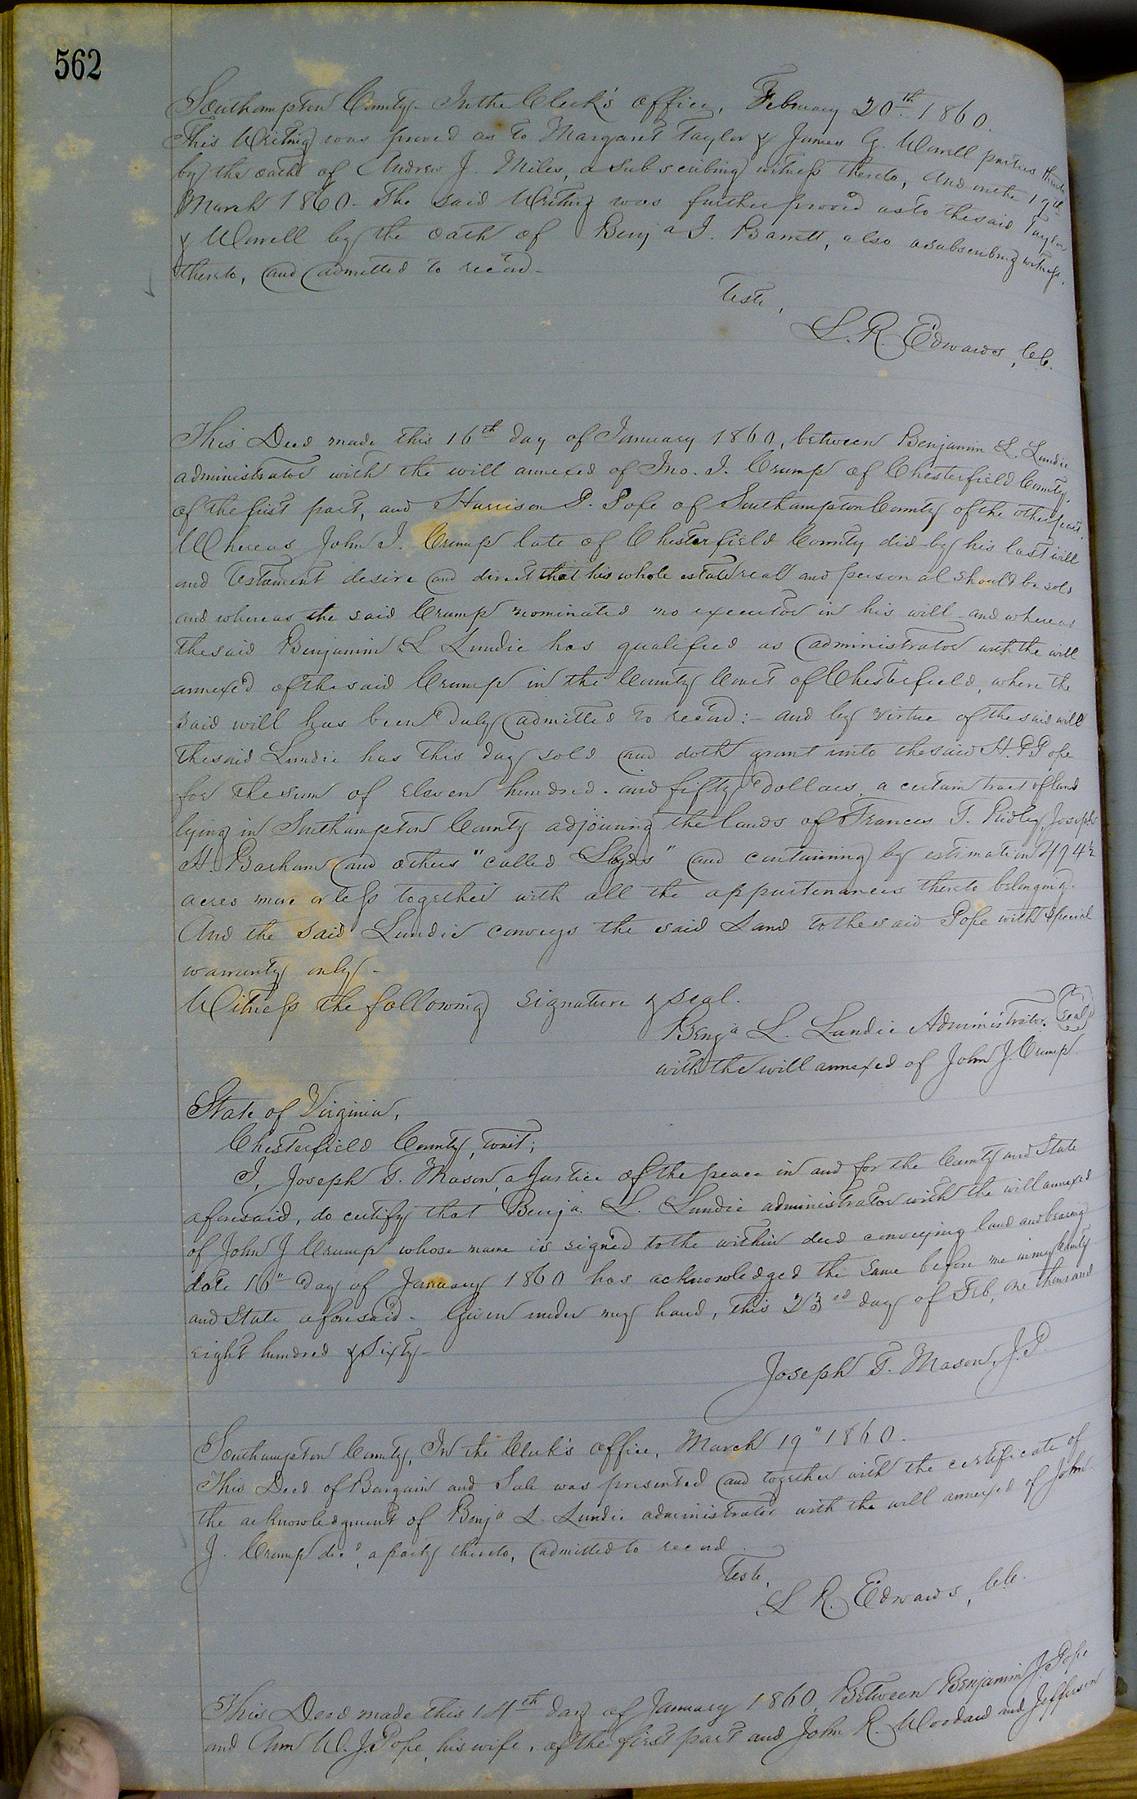 562
Southampton County. In the Clerk's office, February 20th 1860.
This Writing was proved as to Margaret Taylor & James G. Worrell parties thereto
by the oath of Andrew J. Niles, a subscribing witness thereto, And on the 19th
March 1860. The said Writing was further proved as to the said Taylor
& Worrell by the oath of Benja J. Barrett, also a subscribing witness
thereto, and admitted to record.
Teste,
L. R. Edwards, CC.
This Deed made this 16th day of January 1860, between Benjamin L. Lundie
administrator with the will annexed of Jno. J. Crump of Chesterfield County
of the first part, and Harrison P. Pope of Southampton County of the other part,
Whereas John J. Crump late of Chesterfield County did by his last will
and testament desire and direct that his whole estate real and personal should be sold
and whereas the said Crump nominated no executor in his will and whereas
the said Benjamin L Lundie has qualified as administrator with the will
annexed of the said Crump in the County Court of Chesterfield, where the
said will has been duly admitted to record:- and by virtue of the said will
the said Lundie has this day sold and doth grant unto the said H. P. Pope
for the sum of eleven hundred and fifty dollars, a certain tract of land
lying in Southampton County adjoining the lands of Frances T. Ridley, Joseph
H. Barham and others "called" and containing by estimation 494½
acres more or less together with all the appurtenances thereto belonging.
And the said Lundie conveys the said Land to the said Pope with special
warranty only-
Witness the following signature & seal.
Benja L. Lundie Administrator (Seal)
with the will annexed of John J. Crump
State of Virginia,
Chesterfield County, towit;
I, Joseph T. Mason, a Justice of the peace in and for the County and State
aforesaid, do certify that Benja. L. Lundie administrator with the will annexed
of John J Crump whose name is signed to the within deed conveying land and bearing
date 16" day of January 1860 has acknowledged the same before me in my County
and State aforesaid. Given under my hand, this 23rd day of Feb, one thousand
eight hundred & Sixty-
Joseph T. Mason, J.P.
Southampton County, In the Clerk's office, March 19" 1860.
This Deed of Bargain and Sale was presented and together with the certificate of
the acknowledgment of Benja L. Lundie administrator with the will annexed of John
J. Crump decd, a party thereto, admitted to record.
Teste,
L R. Edwards, CC.
This Deed made this 14th day of January 1860 Between Benjamin J. Pope
and Ann W. J. Pope, his wife, of the first part and John R. Woodard and Jefferson